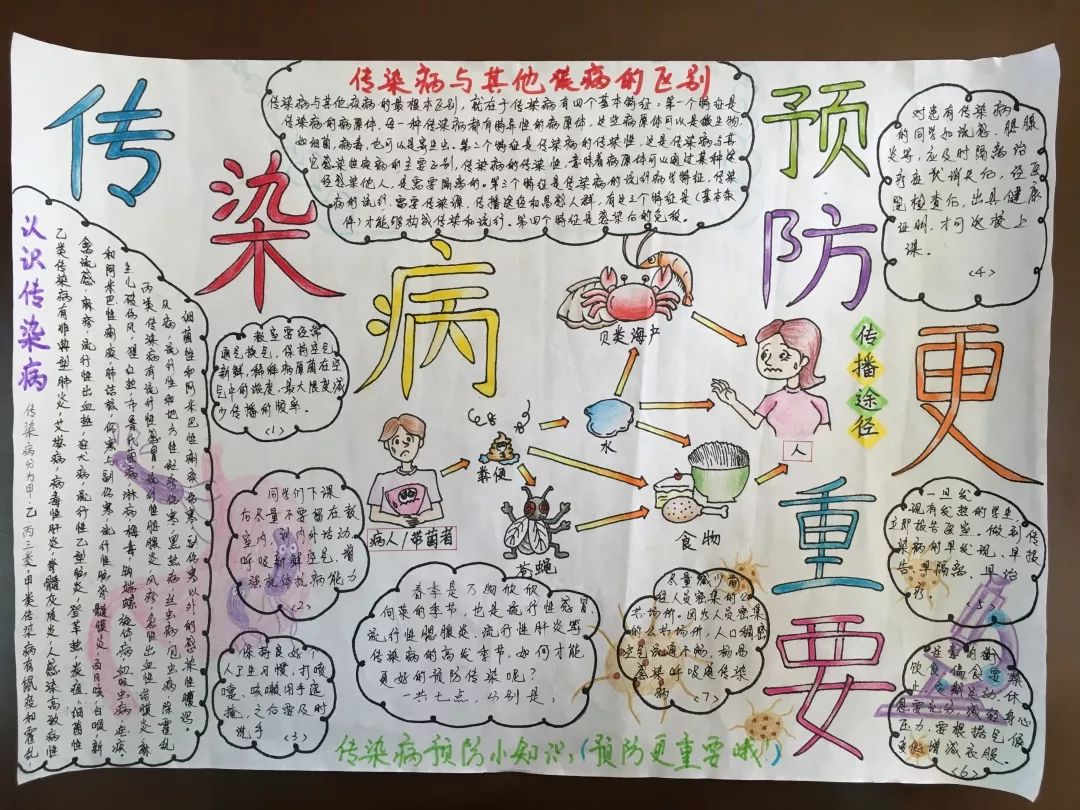 传染病预防更重要
传染病与其他疾病的区别
传染病与其他疾病的最根本区别，就在于传染病有四个基本特征。第一个特征是
传染病的病原体，每一种传染病都有特异性的病原体，这些病原体可以是微生物
如细菌，病毒，也可以是寄生虫。第二个特征是传染病的传染性，这是传染病与其
它感染性疾病的主要区别，传染病的传染性，意味着病原体可以通过某种途
径感染他人，是需要隔离的。第三个特征是传染病的流行病学特征，传染
病的流行，需要传染源，传播途径和易感人群，有这三个特征是（基本条
件）才能够构成传染和流行。第四个特征是感染后的免疫。
认识传染病
传染病分为甲乙丙三类甲类传染病有鼠疫和霍乱，
乙类传染病有非典型肺炎，艾滋病，病毒性肝炎，脊髓灰质炎，人感染高致病性
禽流感，麻疹，流行性出血热，狂犬病，流行性乙型脑炎，登革热，炭疽，细菌性
和阿米巴性痢疾，肺结核，伤寒与副伤寒，流行性脑脊髓膜炎，百日咳，白喉，新
生儿破伤风，猩红热，布鲁氏菌病，淋病，梅毒，钩端螺旋体病，血吸虫病，疟疾。
丙类传染病有流行性感冒，流行性腮腺炎，风疹，急性出血性结膜炎，麻
风病，流行性和地方性斑疹伤寒，黑热病，丝虫病，包虫病，除霍乱
细菌性和阿米巴性痢疾，伤寒，副伤寒以外的感染性腹泻。
教室要经常
通气换气，保持空气
新鲜，稀释病原菌在空
气中的浓度，最大限度减
少传播的频率。
<1>
同学们下课
后尽量不要留在教
室内，到户外活动
呼吸新鲜空气，增
强抗体抗病能力
<2>
保持良好个
人卫生习惯，打喷
嚏、咳嗽用手遮
掩，之后要及时
洗手
<3>
对患有传染病
的同学如流感、腮腺
炎等，应及时隔离治
疗症状消失后，经医
院检查后，出具健康
证明，才可返校上
课。
<4>
一旦发
现有发热的学生，
立即报告医室。做到传
染病的早发现、早报
告、早隔离、早治
疗
<5>
<6>
尽量减少前
往人员密集的公
共场所。因为人员密集
的公共场所，人口稠密
空气流通不畅，极易
感染呼吸道传染
病
<7>
春季是万物欣欣
向荣的季节，也是流行性感冒
流行性腮腺炎、流行性肝炎等
传染病的高发季节，如何才能
更好的预防传染呢？
一共七点，分别是：
传播途径
贝类海产
水
粪便
苍蝇
食物
人
病人/带菌者
传染病预防小知识，（预防更重要哦！）